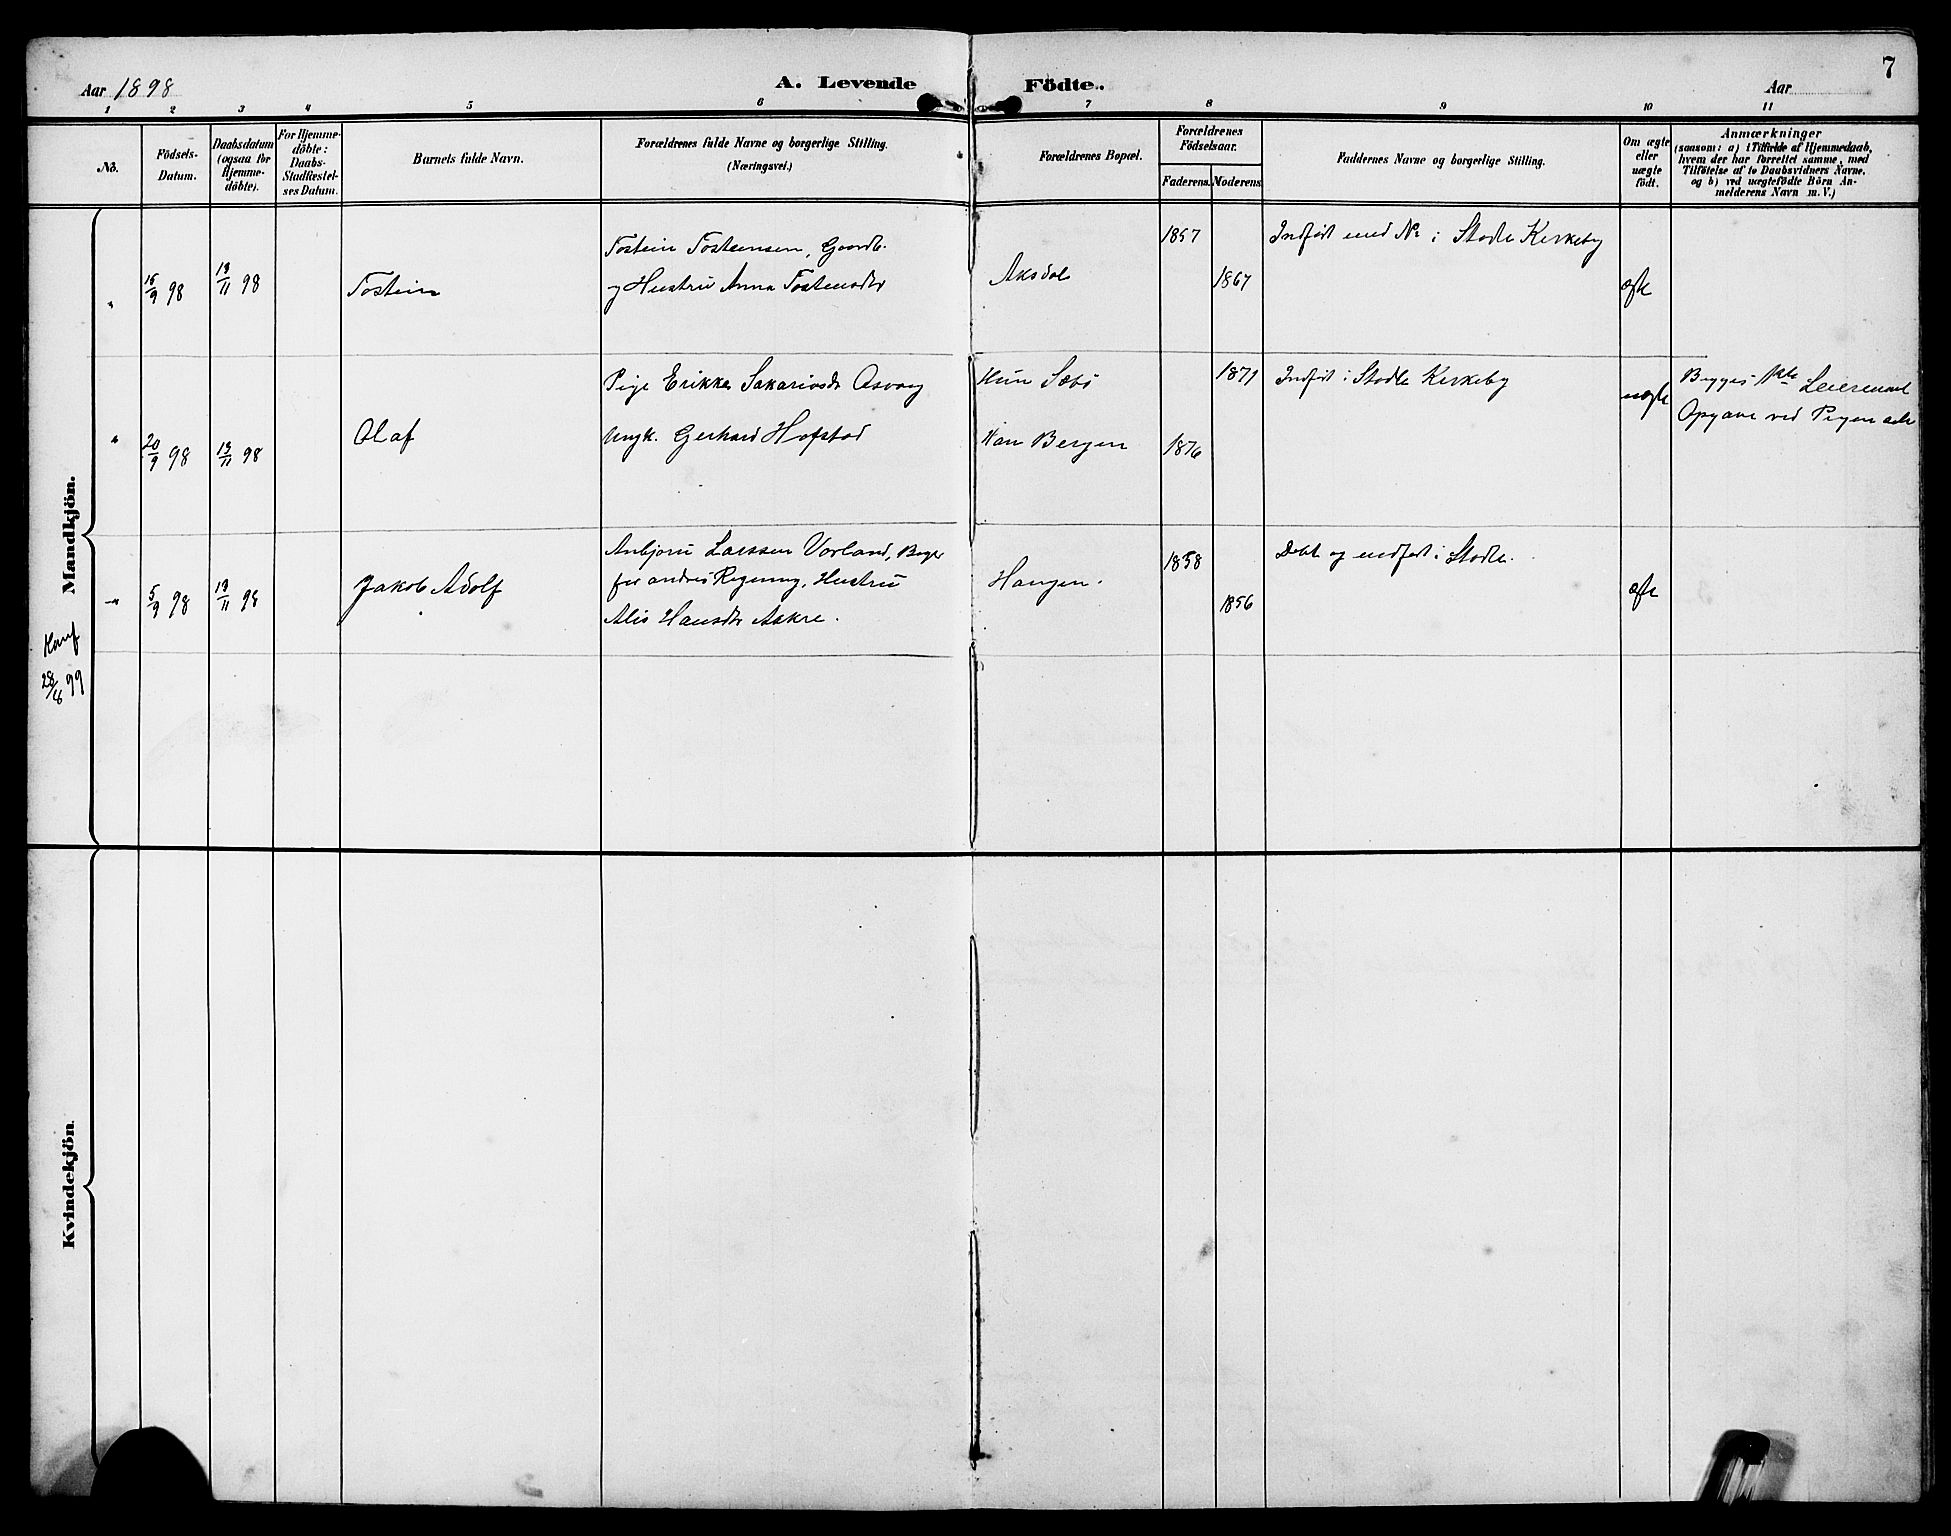 7
Aar 1898 A. Levende Födte.. Aar
1 2 3 4 5 6 7 8 9 10 11
No.
Födsels-
Datum.
Daabsdatum
(ogsaa for
Hjemme-
döbte).
For Hjemme-
döbte:
Daabs-
Stadfæstel-
ses Datum.
Barnets fulde Navn.
Forældrenes fulde Navne og borgerlige Stilling.
(Næringsvei.)
Forældrenes Bopæl.
Forældrenes
Födselsaar.
Faderens. Moderens.
Faddernes Navne og borgerlige Stilling.
Om ægte
eller
uægte
födt.
Anmærkninger
(saasom: a) i Tilfælde af Hjemmedaab,
hvem der har forrettet samme, med
Tilföielse af to Daabsvidners Navne,
og b) ved uægtefödte Börn An-
melderens Navn m. V.)
Mandkjön.
" 15/9 98 13/11 98
Tostein
Tostein Tostensen, Gaardb.
og Hustru Anna Tostensdtr
Aksdal
1857
1867
Indført med No i Stodle Kirkeby
ægte
" 20/9 98 13/11 98
Olaf
Pige Erikka Sakariasdtr Asvaag
Ungk. Gerhard Hofstad
Hun Sæbø
Han Bergen
1871
1876
Indført i Stodle Kirkeby
uægte
Begges 1ste Leiermaal
Opgave ved Pigen selv
" 5/9 98 13/11 98
Jakob Adolf
Anbjørn Larssen Vorland, Bager
for andres Regning, Hustru
Alis Hansdtr Askre.
Haugen.
1858
1856
Døbt og indført i Stodle.
ægte
Konf
28/8 99
Kvindekjön.